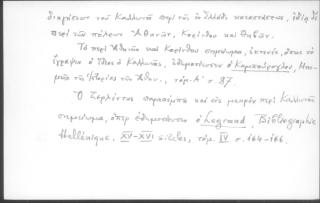 διαμέσεων τοῦ Καλλιντῆ περὶ τῆς ἐν Ἑλλάδι καταστάσεως, ἰδίᾳ δὲ
περὶ τῶν πόλεων Ἀθηνῶν, Κορίνθου καὶ Θηβῶν.
Τὸ περὶ Ἀθηνῶν καὶ Κορίνθου σημείωμα, ἐκτενές, ὅπως τὸ
ἔγραψεν ὁ ἴδιος ὁ Καλλιντῆς, ἐδημοσίευσεν ὁ Καμπούρογλου, Μνη-
μεῖα τῆς Ἱστορίας τῶν Ἀθην., τόμ. Α΄ σ. 87.
Ὁ Ζερλέντης παραπέμπει καὶ εἰς μικρὸν περὶ Καλλιντῆ
σημείωμα, ὅπερ ἐδημοσίευσεν ὁ Legrand, Bibliographie
Hellénique, XV-XVI siècles, τόμ. IV σ. 164-166.